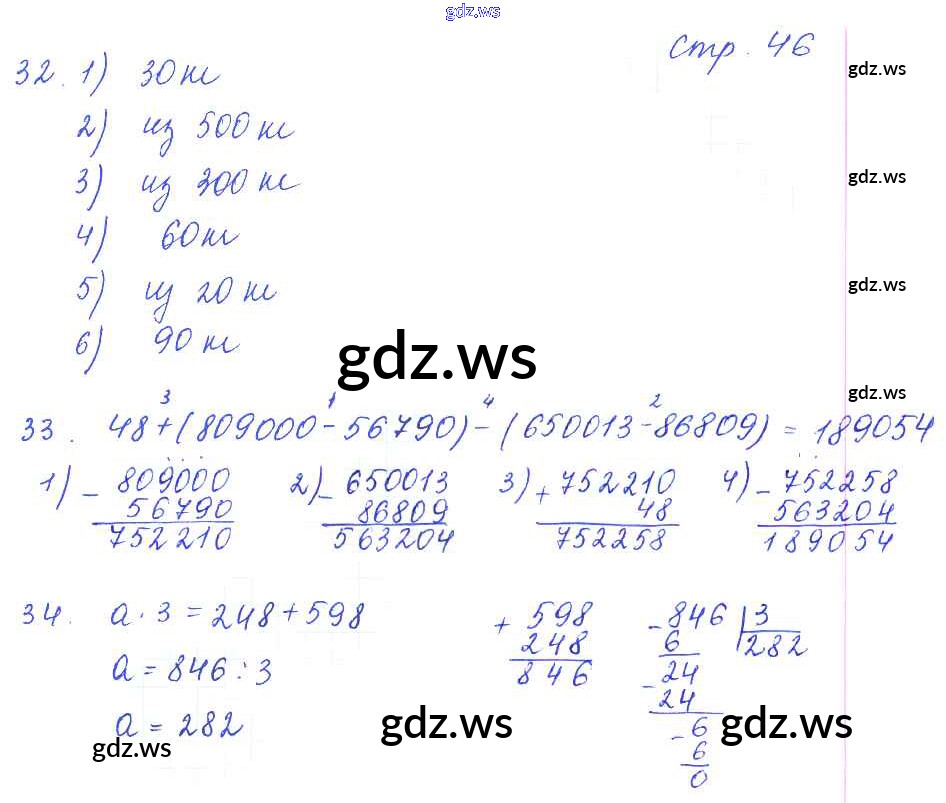 gdz.ws
стр. 46
gdz.ws
32. 1) 30 кг
2) из 500 кг
3) из 300 кг
gdz.ws
4) 60 кг
5) из 20 кг
gdz.ws
6) 90 кг
gdz.ws
gdz.ws
3 1 4 2
33. 48+(809000-56790)-(650013-86809) = 189054
1) - 809000 2) - 650013 3) + 752210 4) - 752258
56790 86809 48 563204
752210 563204 752258 189054
34. a · 3 = 248 + 598 + 598 - 846 | 3
248 6 282
a = 846 : 3 846 - 24
24
a = 282 - 6
gdz.ws gdz.ws gdz.ws
6
0